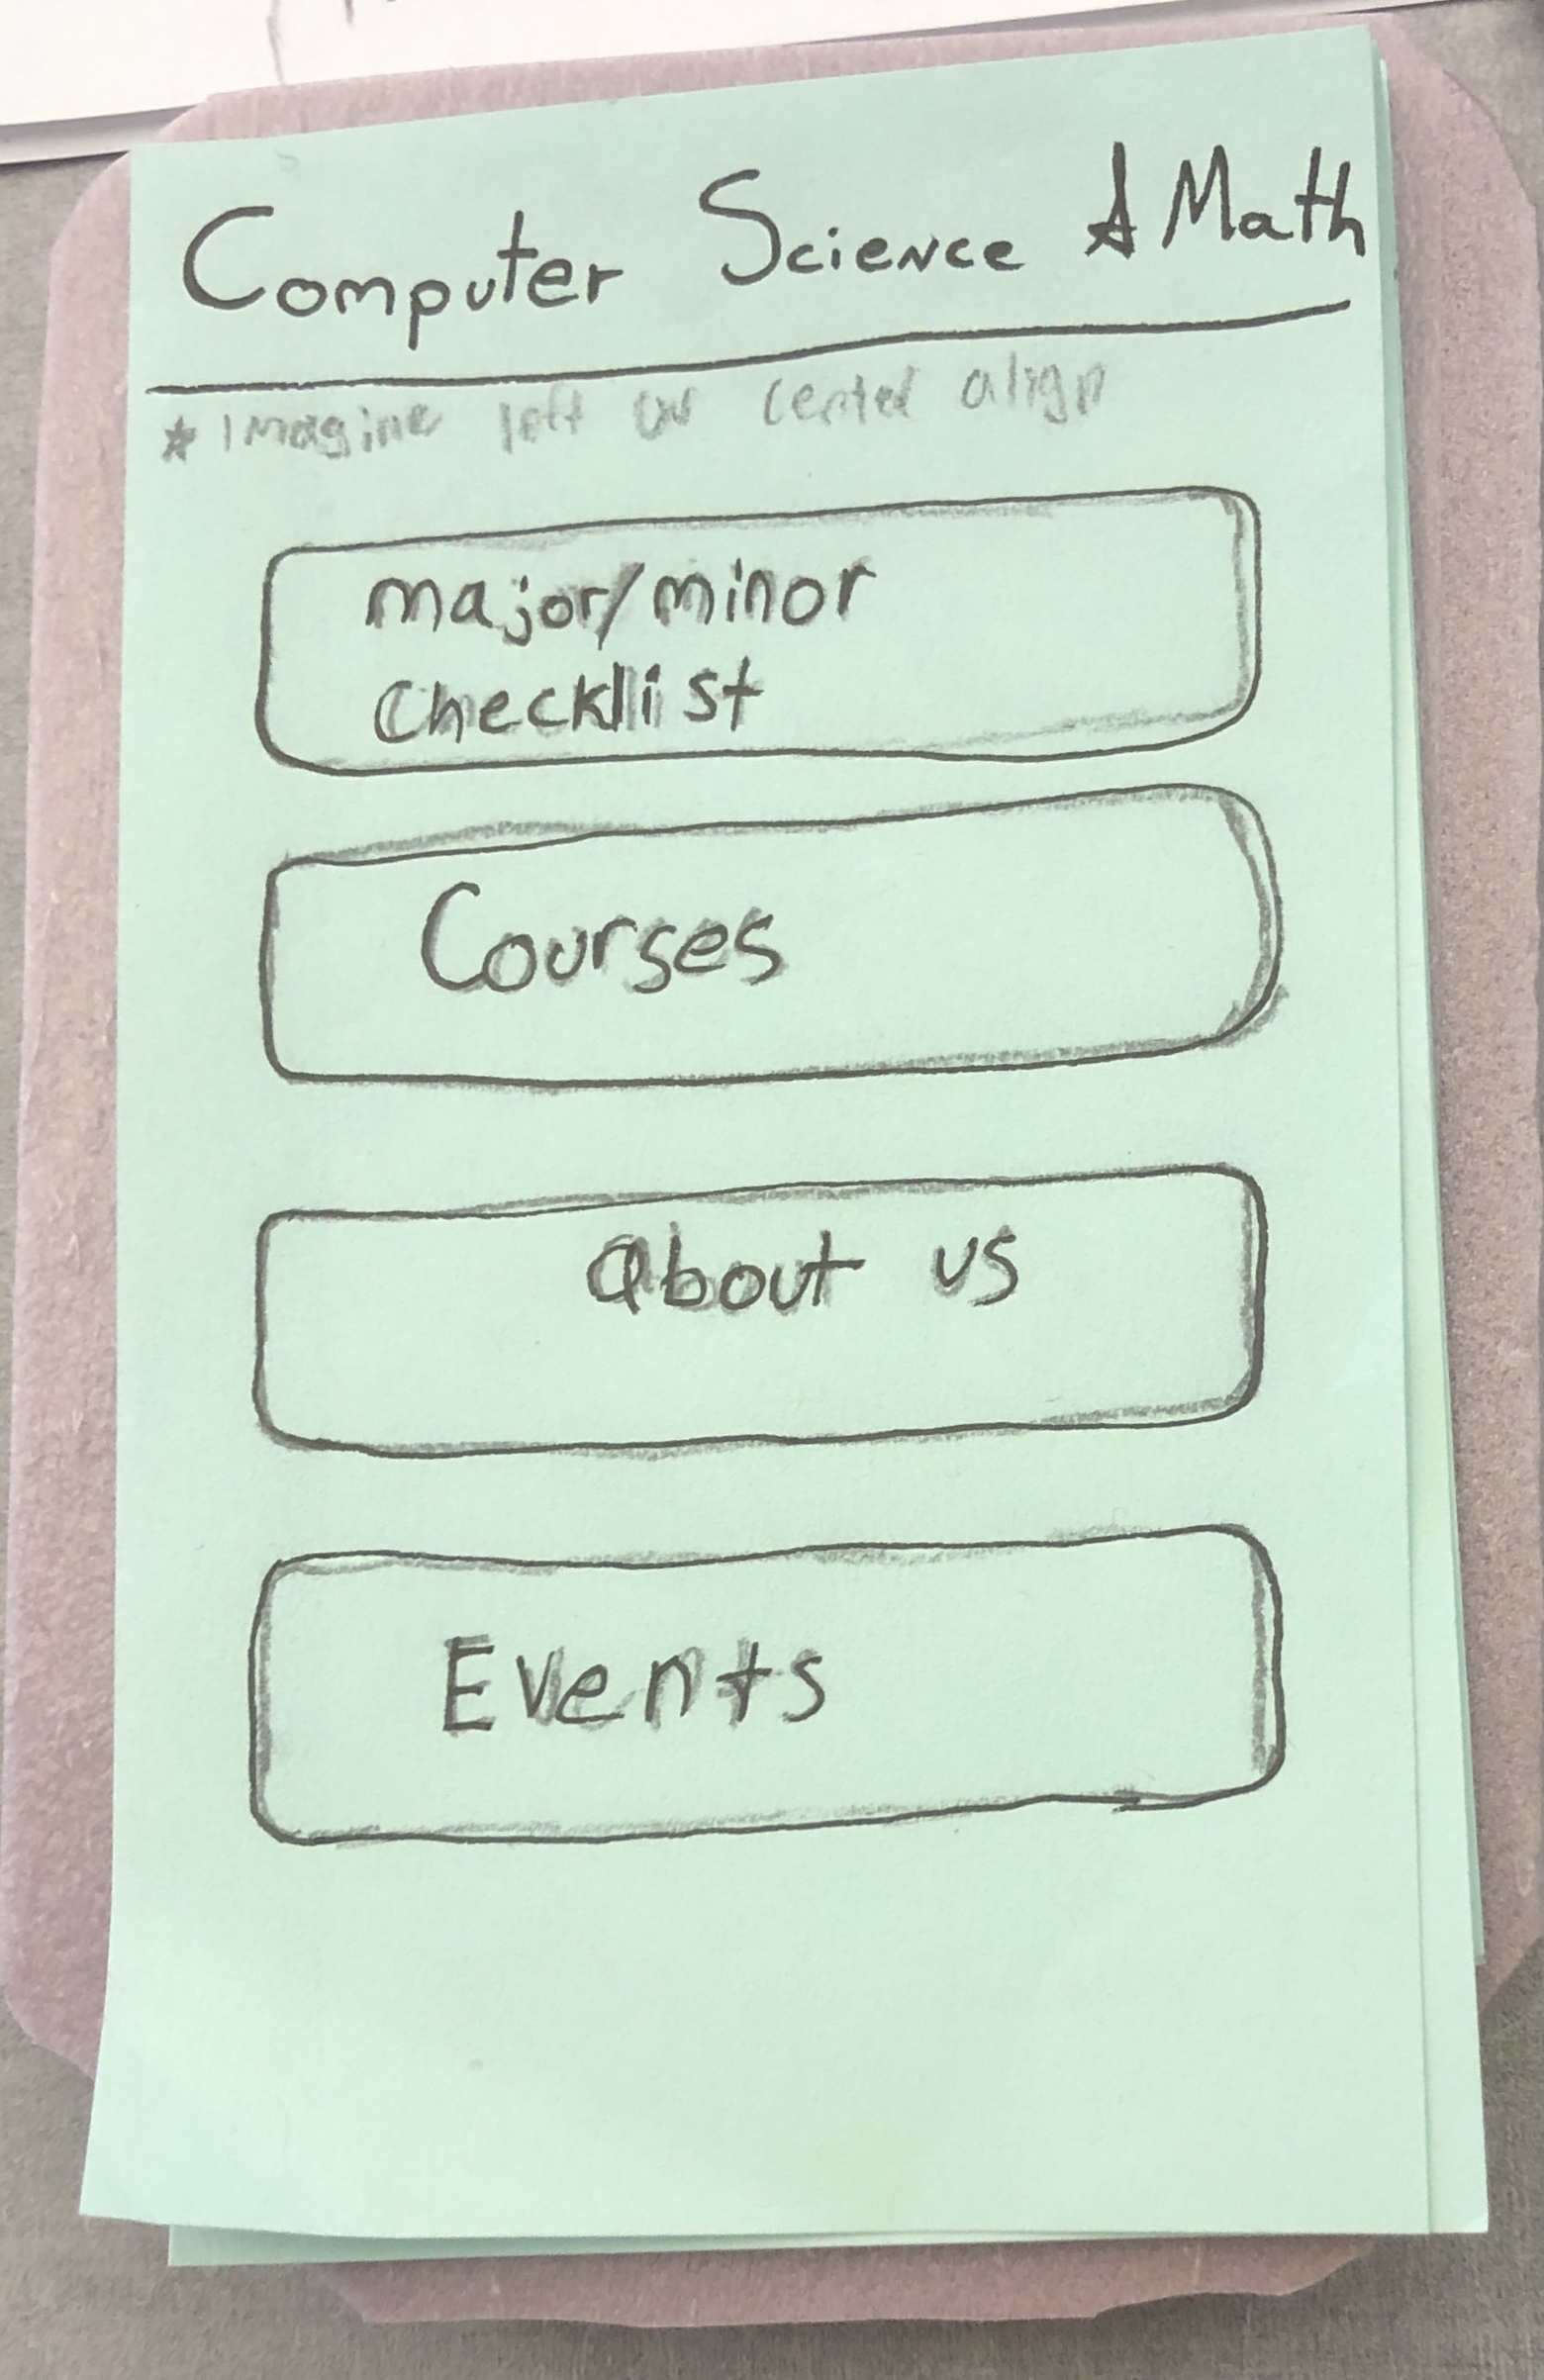 Computer Science & Math
* Imagine left or center align
major/minor
checklist
Courses
about us
Events